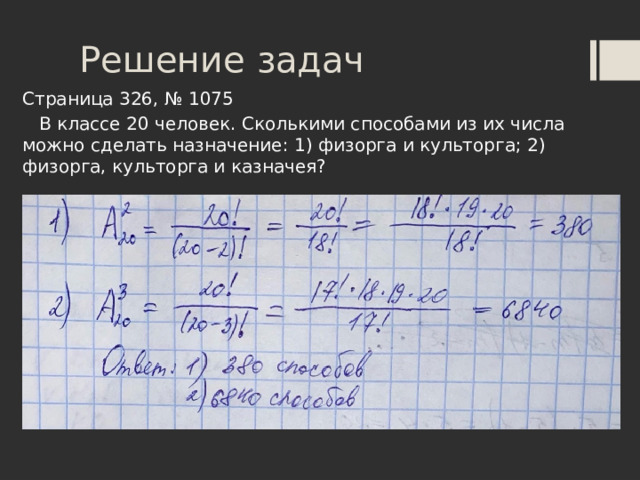 Решение задач
Страница 326, № 1075
В классе 20 человек. Сколькими способами из их числа
можно сделать назначение: 1) физорга и культорга; 2)
физорга, культорга и казначея?
1) A²₂₀ = 20!/(20-2)! = 20!/18! = 18!·19·20/18! = 380
2) A³₂₀ = 20!/(20-3)! = 17!·18·19·20/17! = 6840
Ответ: 1) 380 способов
2) 6840 способов